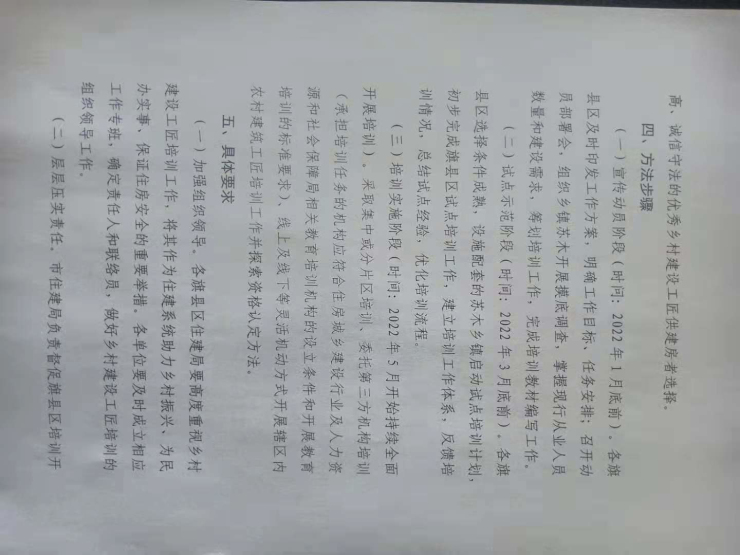 高、诚信守法的优秀乡村建设工匠供建房者选择。
四、方法步骤
（一）宣传动员阶段（时间：2022年1月底前）。各旗
县区及时印发工作方案，明确工作目标、任务安排；召开动
员部署会，组织乡镇苏木开展摸底调查，掌握现行从业人员
数量和建设需求，筹划培训工作，完成培训教材编写工作。
（二）试点示范阶段（时间：2022年3月底前）。各旗
县区选择条件成熟，设施配套的苏木乡镇启动试点培训计划，
初步完成旗县区试点培训工作，建立培训工作体系，反馈培
训情况，总结试点经验，优化培训流程。
（三）培训实施阶段（时间：2022年5月开始持续全面
开展培训）。采取集中或分片区培训、委托第三方机构培训
（承担培训任务的机构应符合住房城乡建设行业及人力资
源和社会保障局相关教育培训机构的设立条件和开展教育
培训的标准要求）、线上及线下等灵活机动方式开展辖区内
农村建筑工匠培训工作并探索资格认定方法。
五、具体要求
（一）加强组织领导。各旗县区住建局要高度重视乡村
建设工匠培训工作，将其作为住建系统助力乡村振兴、为民
办实事、保证住房安全的重要举措。各单位要及时成立相应
工作专班，确定责任人和联络员，做好乡村建设工匠培训的
组织领导工作。
（二）层层压实责任。市住建局负责督促旗县区培训开